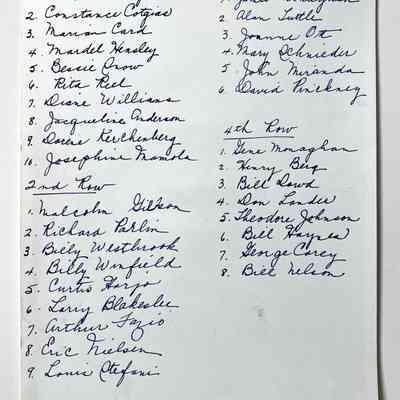 2. Constance Cotgias
3. Marian Card
4. Mardel Hensley
5. Bessie Snow
6. Rita Reel
7. Diane Williams
8. Jacqueline Anderson
9. Dorene Kerchenberg
10. Josephine Mamola
2nd Row
1. Malcolm Gibson
2. Richard Parlin
3. Billy Westbrook
4. Billy Winfield
5. Curtis Hargo
6. Larry Blakeslee
7. Arthur Fazio
8. Eric Nielsen
9. Louis Stefani
1. James
2. Alan Tuttle
3. Joanne Ott
4. Mary Schnieder
5. John Miranda
6. David Pinckney
4th Row
1. Gene Monaghan
2. Henry Berg
3. Bill Dowd
4. Don Lander
5. Theodore Johnson
6. Bill Haynes
7. George Carey
8. Bill Nelson